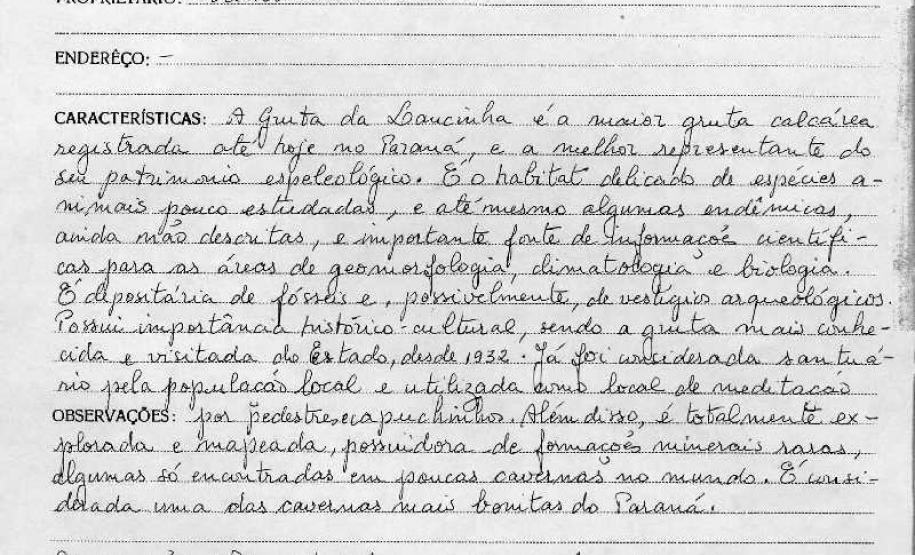 PROPRIETÁRIO:
ENDERÊÇO: —
CARACTERÍSTICAS: A Gruta da Lancinha é a maior gruta calcárea
registrada até hoje no Paraná, e a melhor representante do
seu patrimonio espeleológico. É o habitat delicado de espécies a-
nimais pouco estudadas, e até mesmo algumas endêmicas,
ainda não descritas, e importante fonte de informações cientifi-
cas para as áreas de geomorfologia, climatologia e biologia.
É depositária de fósseis e, possivelmente, de vestígios arqueológicos.
Possui importância histórico-cultural, sendo a gruta mais conhe-
cida e visitada do Estado, desde 1932. Já foi considerada santuá-
rio pela população local e utilizada como local de meditação
OBSERVAÇÕES: por pedestres e capuchinhos. Além disso, é totalmente ex-
plorada e mapeada, possuidora de formações minerais raras,
algumas só encontradas em poucas cavernas no mundo. É consi-
derada uma das cavernas mais bonitas do Paraná.